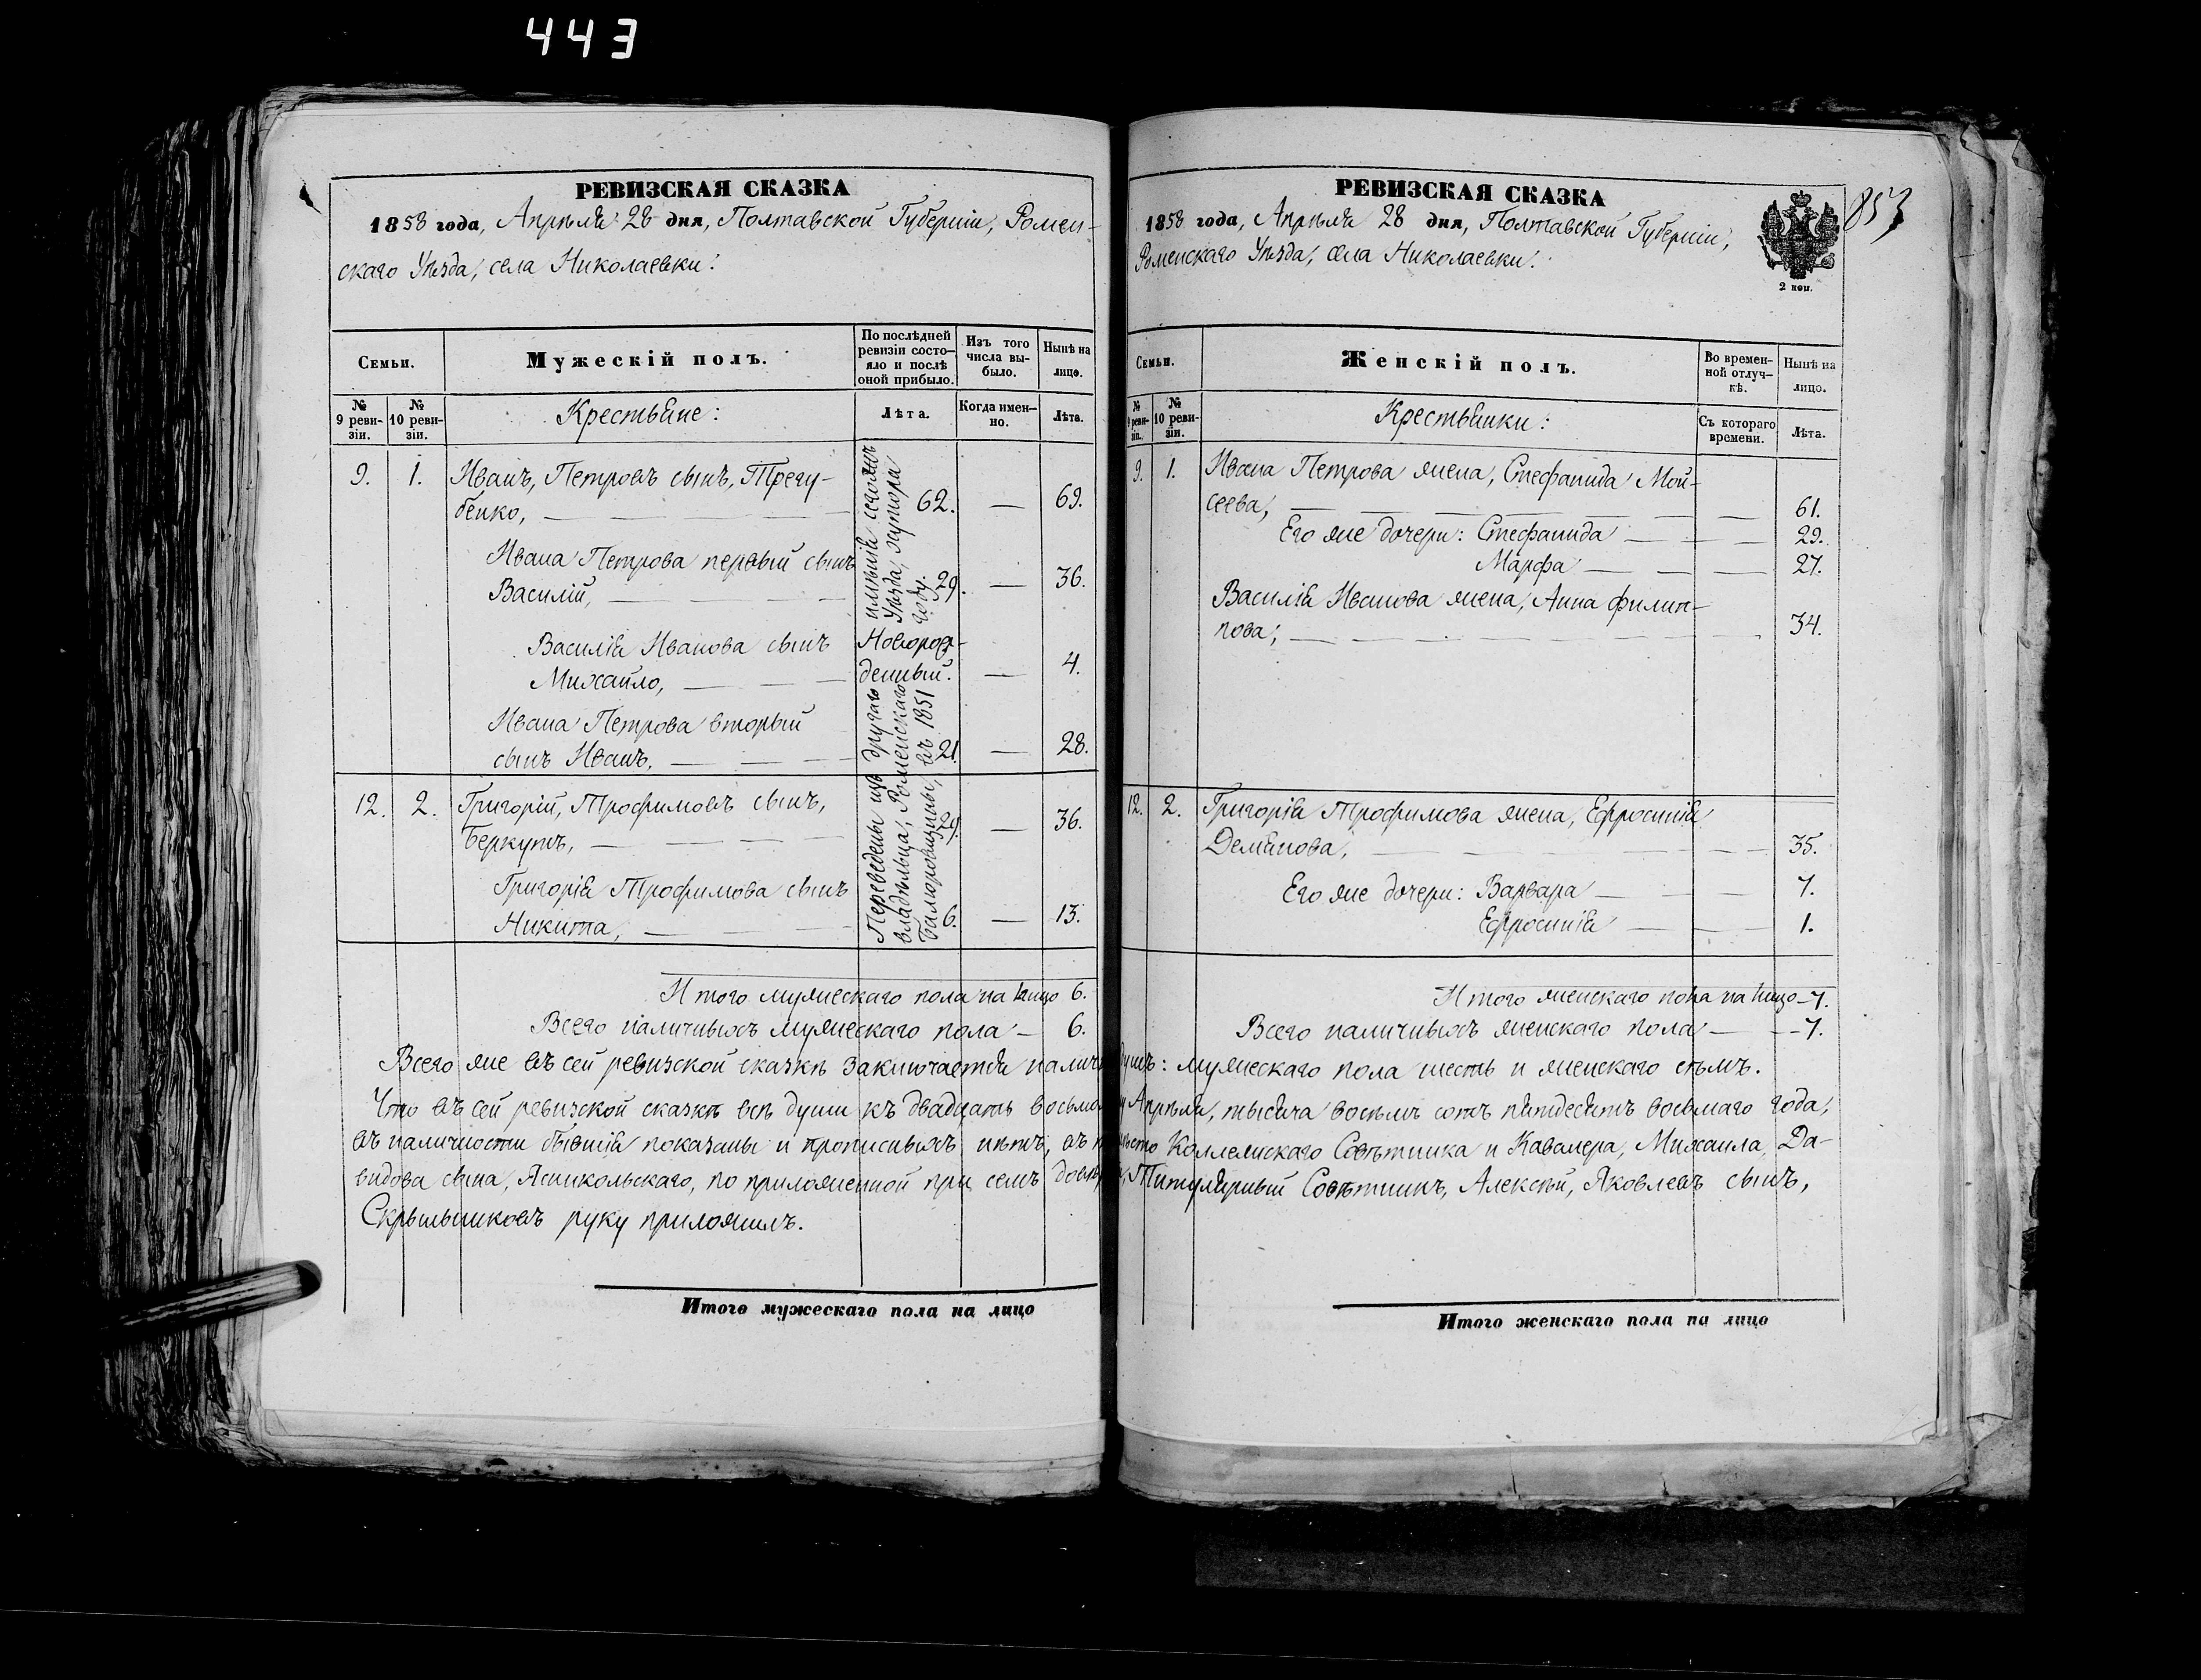 443
РЕВИЗСКАЯ СКАЗКА
1858 года, Апрѣля 28 дня, Полтавской Губерніи, Ромен-
скаго Уѣзда, села Николаевки.
Семьи.
Мужескій полъ.
По послѣдней ревизіи состо-яло и послѣ оной прибыло.
Изъ того числа вы-было.
Нынѣ на лицо.
№ 9 реви-зіи.
№ 10 реви-зіи.
Крестьяне:
Лѣта.
Когда имен-но.
Лѣта.
9. 1. Иванъ, Петровъ сынъ, Трегу-
бенко, 62. — 69.
Ивана Петрова первый сынъ
Василій, 29. — 36.
Василія Иванова сынъ Новорож-
Михайло, денный. — 4.
Ивана Петрова вторый
сынъ Иванъ, 21. — 28.
12. 2. Григорій, Трофимовъ сынъ,
Беркутъ, 29. — 36.
Григорія Трофимова сынъ
Никита, 6. — 13.
Переведены изъ другаго имѣнія
владѣльца, Роменскаго Уѣзда, хутора
въ 1851 году.
Итого мужескаго пола на лицо 6.
Всего наличныхъ мужескаго пола — 6.
РЕВИЗСКАЯ СКАЗКА
1858 года, Апрѣля 28 дня, Полтавской Губерніи,
Роменскаго Уѣзда, села Николаевки.
2 коп.
853
Семьи.
Женскій полъ.
Во времен-ной отлуч-кѣ.
Нынѣ на лицо.
№ 9 реви-зіи.
№ 10 реви-зіи.
Крестьянки:
Съ котораго времени.
Лѣта.
9. 1. Ивана Петрова жена, Стефанида Мой-
сеева, — 61.
Его же дочери: Стефанида — 29.
Марфа — 27.
Василія Иванова жена, Анна Филип-
пова, — 34.
12. 2. Григорія Трофимова жена, Ефросинія
Демянова, — 35.
Его же дочери: Варвара — 7.
Ефросинія — 1.
Итого женскаго пола на лицо — 7.
Всего наличныхъ женскаго пола — 7.
Всего же въ сей ревизской сказкѣ заключается налич душъ: мужескаго пола шесть и женскаго семь.
Что въ сей ревизской сказкѣ всѣ души къ двадцать восьмо Апрѣля, тысяча восемь сотъ пятдесятъ восьмаго года,
въ наличности бывшія показаны и прописныхъ нѣтъ, въ Коллежскаго Совѣтника и Кавалера, Михаила, Да-
видова сына, Яснипольскаго, по приложенной при семъ довѣр Титулярный Совѣтникъ, Алексѣй, Яковлевъ сынъ,
Скрыльниковъ руку приложилъ.
Итого мужескаго пола на лицо
Итого женскаго пола на лицо